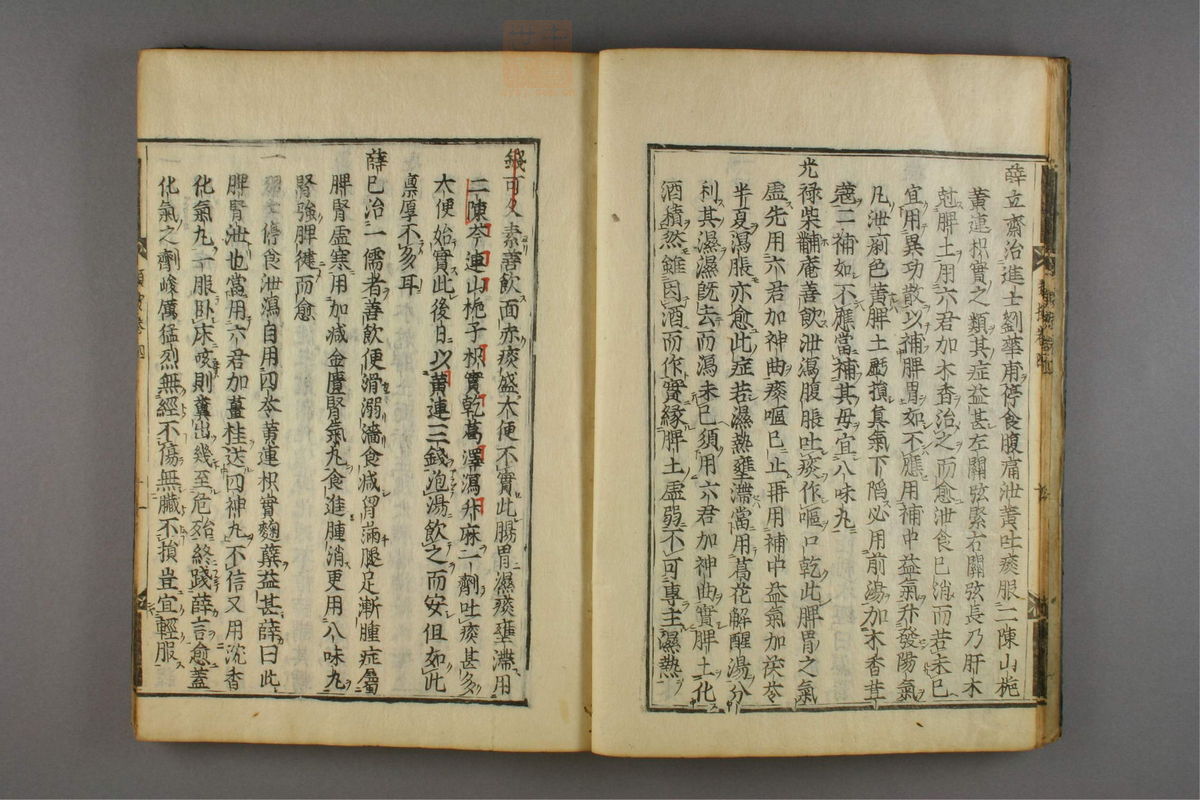 薛立齋治進士劉華甫停食腹痛泄黃吐痰服二陳山梔
黃連枳實之類其症益甚左關弦緊右關弦長乃肝木
尅脾土用六君加木香治之而愈泄食已消而若未已
宜用異功散以補脾胃如不應用補中益氣升發陽氣
凡泄痢色黃脾土虧損真氣下陷必用前湯加木香荳
蔻二補如不應當補其母宜八味丸
光祿柴黼庵善飲泄瀉腹脹吐痰作嘔口乾此脾胃之氣
虛先用六君加神曲痰嘔已止再用補中益氣加茯苓
半夏瀉脹亦愈此症若濕熱壅滯當用葛花解醒湯分
利其濕濕既去而瀉未已須用六君加神曲實脾土化
酒積然雖因酒而作實緣脾土虛弱不可專主濕熱
錢可久素善飲面赤痰盛大便不實此腸胃濕痰壅滯用
二陳芩連山梔子枳實乾葛澤瀉升麻一劑吐痰甚多
大便始實此後日以黃連三錢泡湯飲之而安但如此
稟厚不多耳
薛已治一儒者善飲便滑溺濇食減胃滿腿足漸腫症屬
脾腎虛寒用加減金匱腎氣丸食進腫消更用八味丸
腎強脾健而愈
一 停食泄瀉自用四苓黃連枳實麴糵益甚薛曰此
脾腎泄也當用六君加薑桂送四神丸不信又用沈香
化氣丸一服臥床咳則糞出幾至危殆終踐薛言愈蓋
化氣之劑峻厲猛烈無經不傷無臟不損豈宜輕服